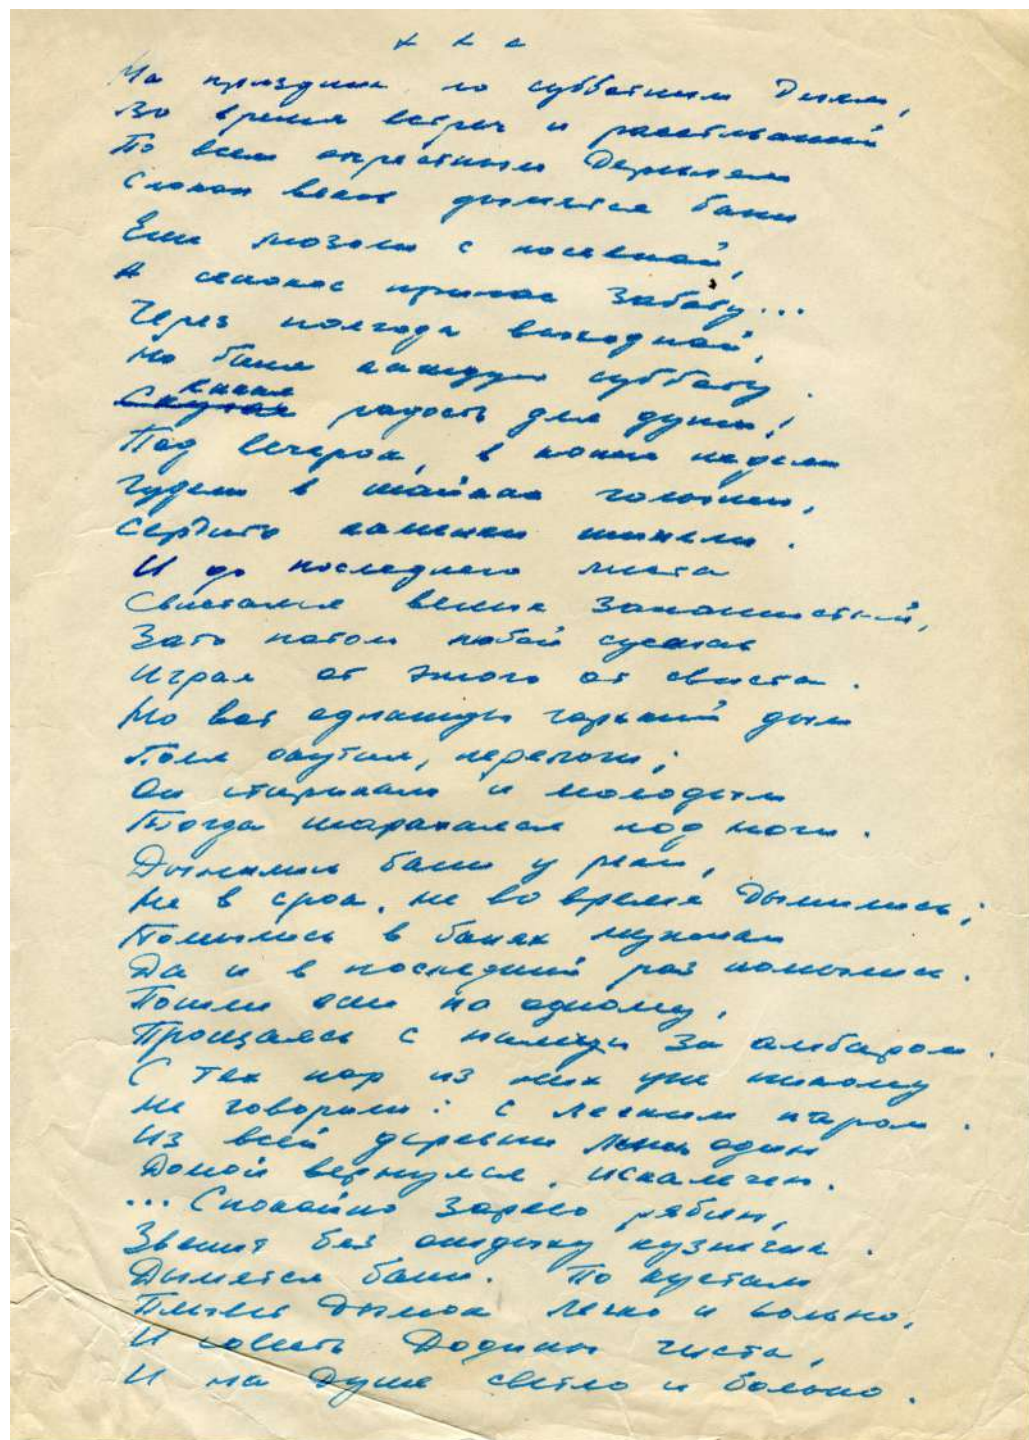 * * *
На праздник по субботним дням,
Во время встреч и расставаний
По всем окрестным деревням
Спокон веков дымятся бани
Ещё мозоли с посевной,
А сенокос принёс заботу...
Через полгода выходной,
Но баня каждую субботу.
Какая радость для души!
Под вечерок, в конце недели
Гудели в шайках голыши,
Сердито каменки шипели.
И до последнего листа
Свистался веник замашистый,
Зато потом любой сустав
Играл от этого от свиста.
Но вот однажды горький дым
Поля окутал, перелоги;
Он старикам и молодым
Тогда шарахался под ноги.
Дымились бани у реки,
Не в срок, не во время дымились;
Помылись в банях мужики
Да и в последний раз помылись.
Пошли они по одному,
Прощаясь с ними за амбаром.
С тех пор из них уже никому
Не говорили: с легким паром.
Из всей деревни лишь один
Домой вернулся, искалечен.
... Спокойно зарево рябин,
Звенит без отдыху кузнечик.
Дымятся бани. По кустам
Плывет дымок легко и вольно,
И совесть Родины чиста,
И на душе светло и больно.